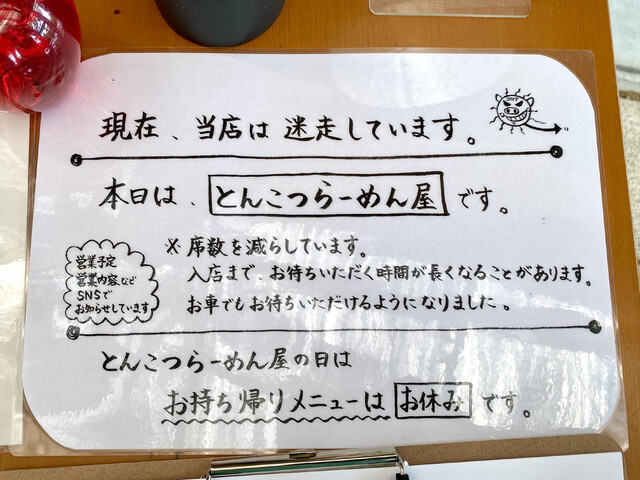 現在、当店は 迷走しています。
本日は、とんこつらーめん屋です。
※席数を減らしています。
入店まで、お待ちいただく時間が長くなることがあります。
お車でもお待ちいただけるようになりました。
営業予定
営業内容など
SNSで
お知らせしています
とんこつらーめん屋の日は
お持ち帰りメニューはお休みです。